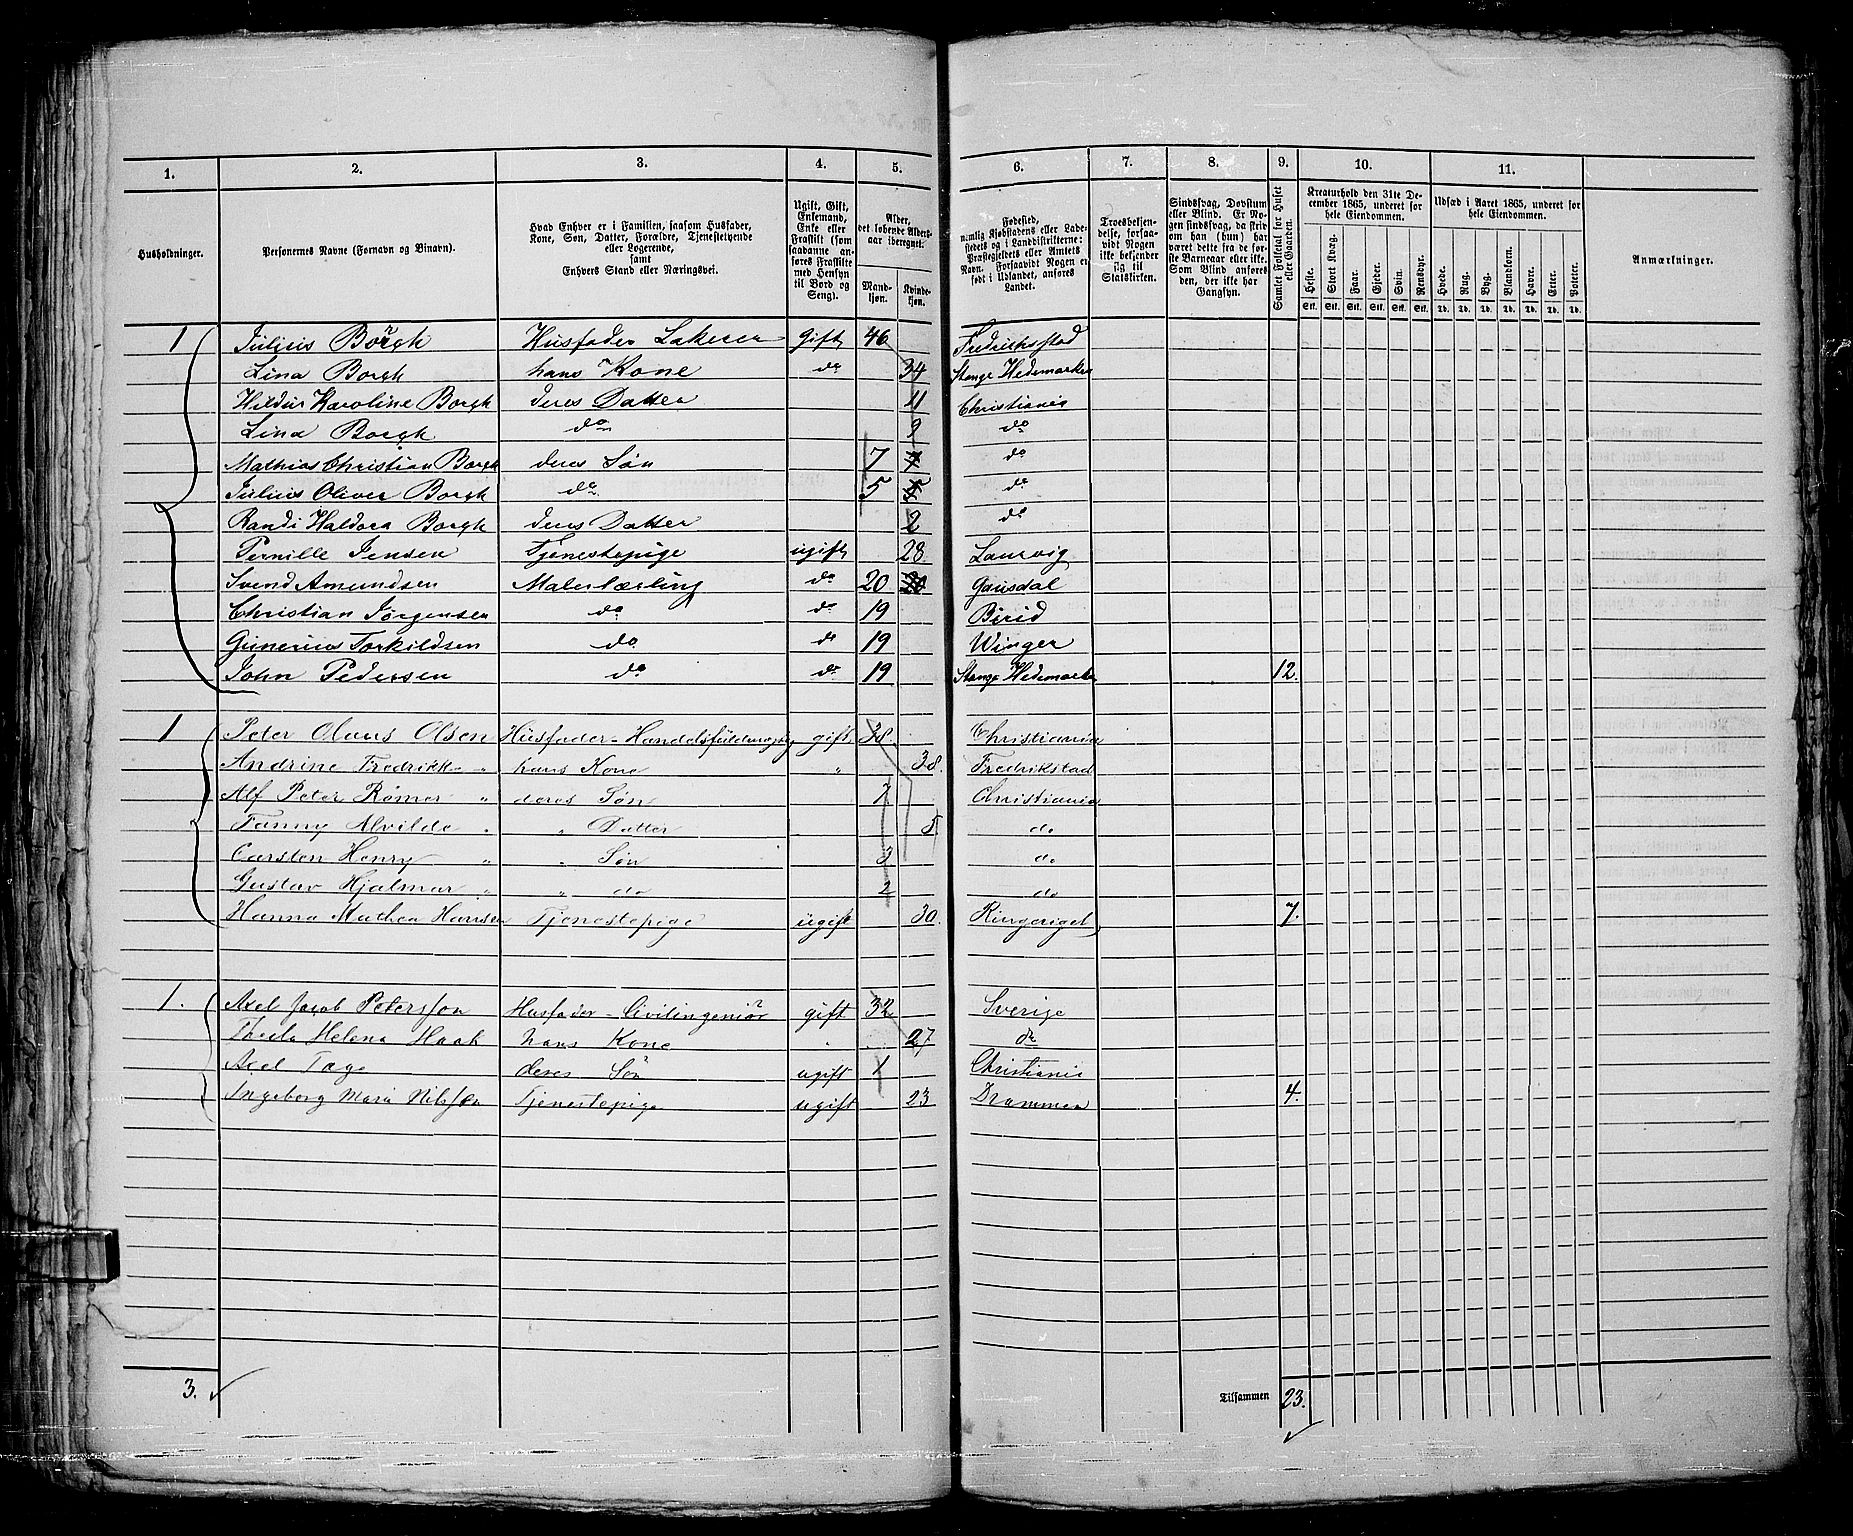 1. 2. 3. 4. 5. 6. 7. 8. 9. 10. 11.
Husholdninger.
Personernes Navne (Fornavn og Binavn).
Hvad Enhver er i Familien, saasom Husfader, Kone, Søn, Datter, Forældre, Tjenestetyende eller Logerende, samt Enhvers Stand eller Næringsvei.
Ugift, Gift, Enkemand, Enke eller Fraskilt (som saadanne anføres Fraskilte med Hensyn til Bord og Seng).
Alder, det løbende Aldersaar iberegnet.
Mandkjøn. Kvindekjøn.
Fødested, nemlig Kjøbstadens eller Ladestedets og i Landdistrikterne: Præstegjeldets eller Amtets Navn. Forsaavidt Nogen er født i Udlandet, anføres Landet.
Troesbekjendelse, forsaavidt Nogen ikke bekjender sig til Statskirken.
Sindssvag, Døvstum eller Blind. Er Nogen sindssvag, da skrives om han (hun) har været dette fra de første Barneaar eller ikke. Som Blind anføres den, der ikke har Gangsyn.
Samlet Folketal for Huset eller Gaarden.
Kreaturhold den 31te December 1865, underet for hele Eiendommen.
Heste. Stort Kvæg. Faar. Gjeder. Svin. Rensdyr.
Stk. Stk. Stk. Stk. Stk. Stk.
Udsæd i Aaret 1865, underet for hele Eiendommen.
Hvede. Rug. Byg. Blandkorn. Havre. Erter. Poteter.
Td. Td. Td. Td. Td. Td. Td.
Anmærkninger.
1 Julius Borgh Husfader Lakerer Gift 46 Fredrikstad
Lina Borgh hans Kone do 34 Stange Hedemarken
Hildur Karoline Borgh deres Datter 11 Christiania
Lina Borgh do 9 do
Mathias Christian Borgh deres Søn 7 do
Julius Oliver Borgh do 5 do
Randi Haldora Borgh deres Datter 2 do
Pernille Jensen Tjenestepige ugift 28. Laurvig
Svend Amundsen Malerlærling do 20 Gausdal
Christian Jørgensen do do 19 Birid
Gunerius Torkildsen do do 19 Winger
John Pedersen do do 19 Stange Hedemarken 12.
1 Peter Olaus Olsen Husfader - Handelsfuldmægtig gift 38. Christiania
Andrine Fredrikke " hans Kone " 38. Fredrikstad
Alf Peter Rømer " deres Søn 7 Christiania
Fanny Alvilde " " Datter 5 do
Carsten Henry " " Søn 3 do
Gustav Hjalmar " " do 2 do
Hanna Mathea Hansen Tjenestepige ugift 30. Ringeriget 7.
1. Axel Jacob Petersson Husfader - Civilingeniør gift 32 Sverige
Helena Haak hans Kone " 27 do
Axel Tage deres Søn ugift 1 Christiania
Ingeborg Maria Nilsson Tjenestepige ugift 23 Drammen 4.
3. Tilsammen 23.